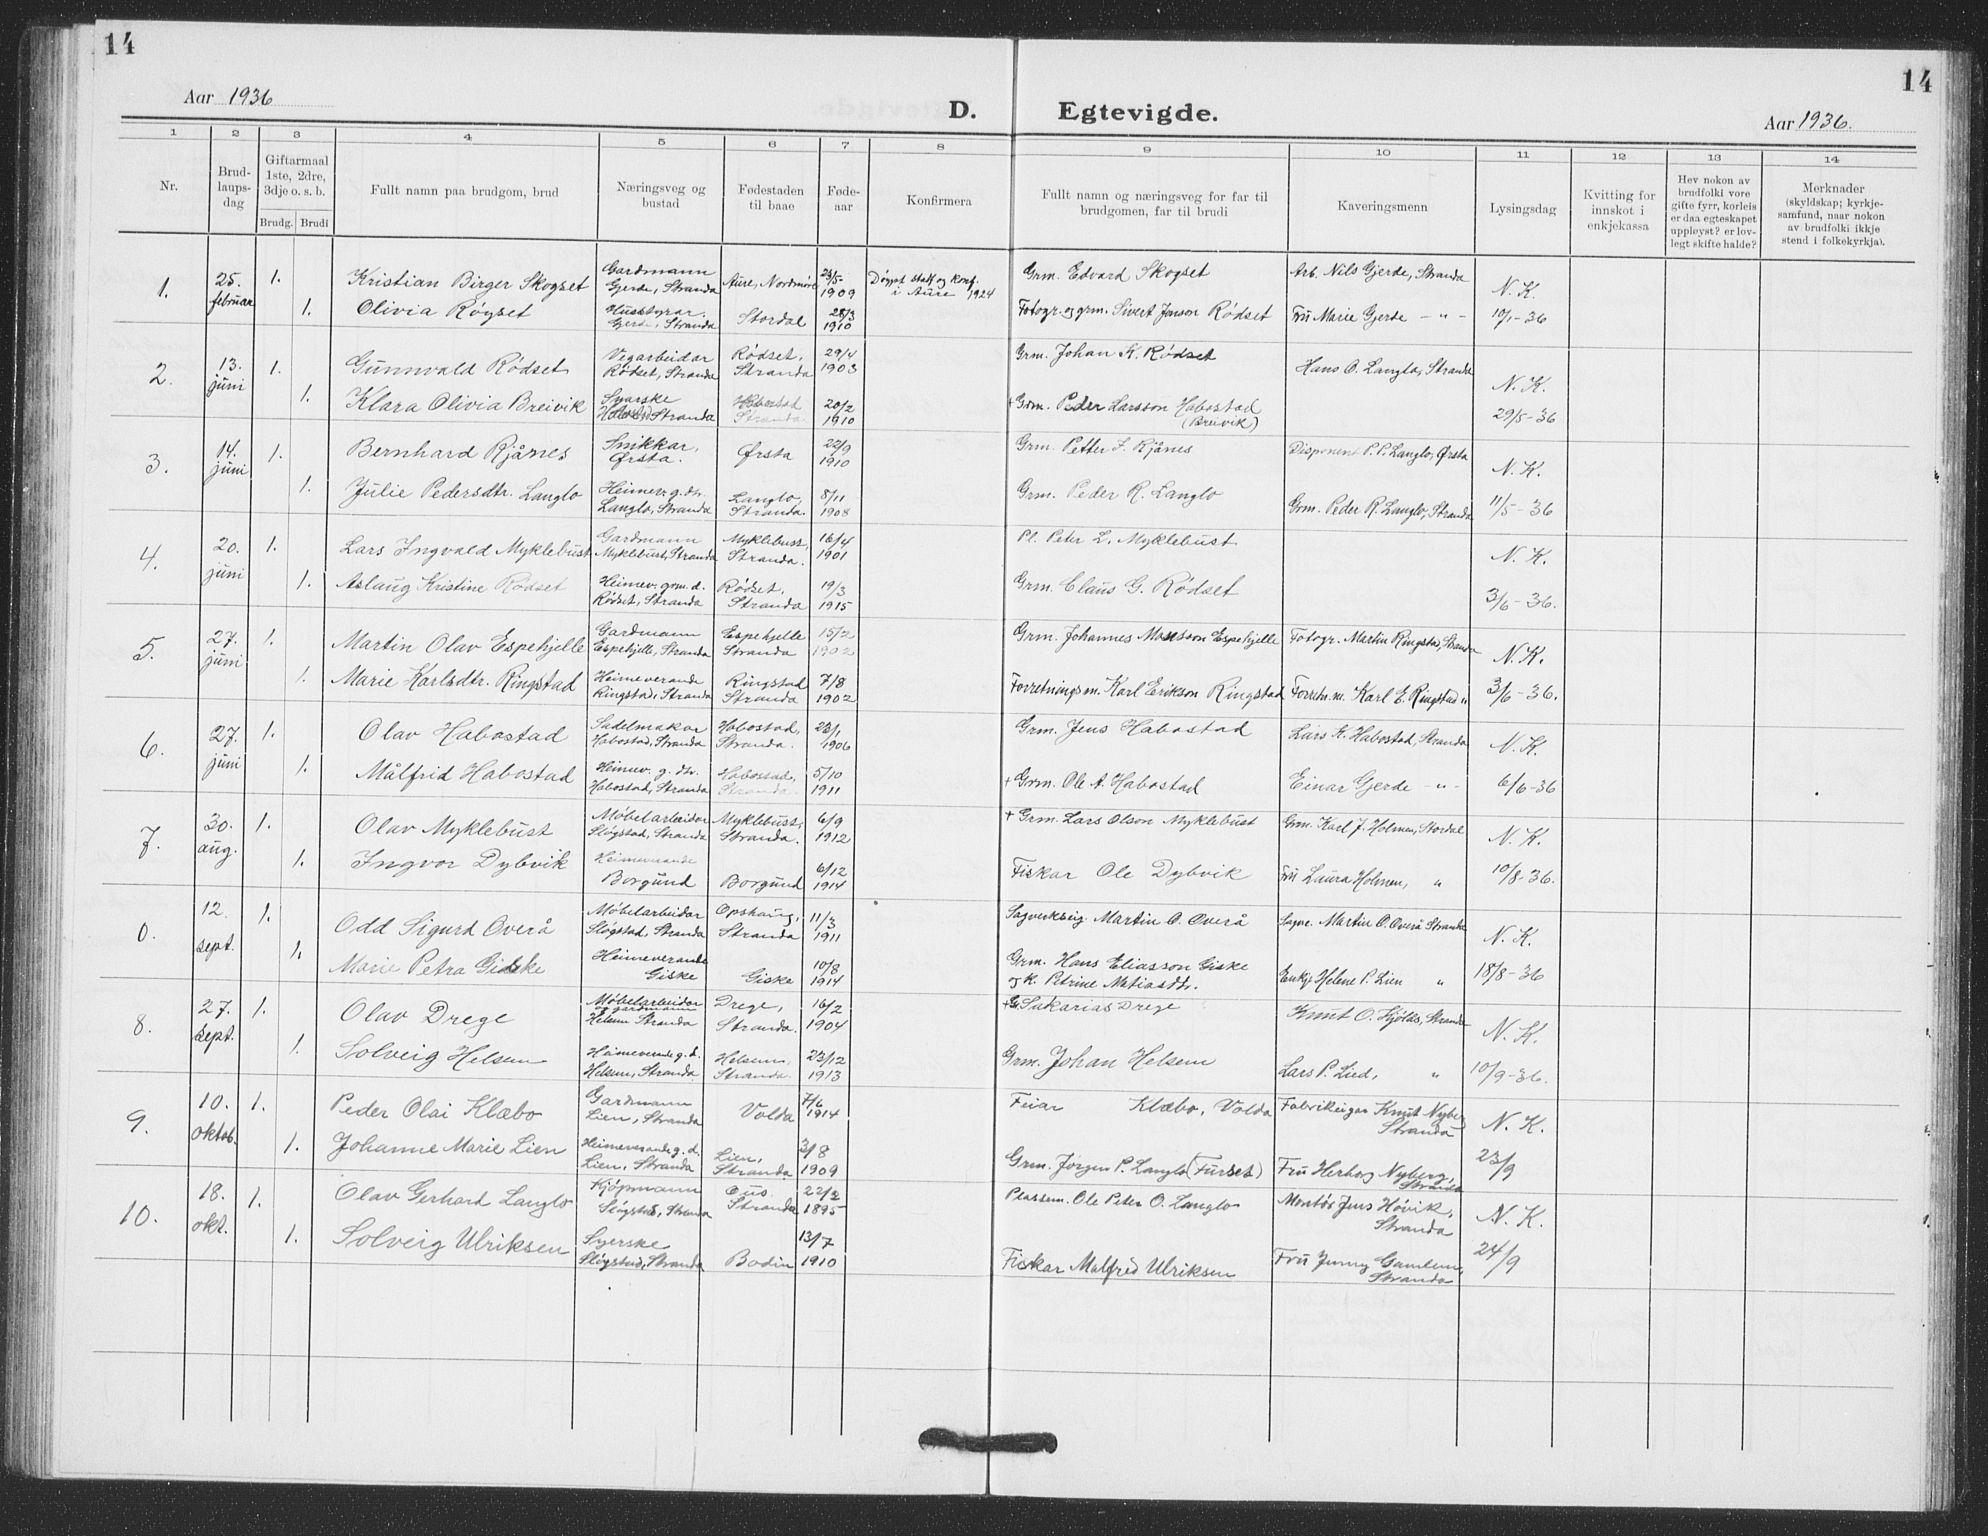 14
14
Aar 1936
D. Egtevigde.
Aar 1936.
1 2 3 4 5 6 7 8 9 10 11 12 13 14
Nr.
Brud-
laups-
dag
Giftarmaal
1ste, 2dre,
3dje o. s. b.
Brudg. Brudi
Fullt namn paa brudgom, brud
Næringsveg og
bustad
Fødestaden
til baae
Føde-
aar
Konfirmera
Fullt namn og næringsveg for far til
brudgomen, far til brudi
Kaveringsmenn
Lysingsdag
Kvitting for
innskot i
enkjekassa
Hev nokon av
brudfolki vore
gifte fyrr, korleis
er daa egteskapet
uppløyst? er lov-
legt skifte halde?
Merknader
(skyldskap; kyrkje-
samfund, naar nokon
av brudfolki ikkje
stend i folkekyrkja).
1. 25. februar 1. Kristian Birger Skogset Gardmann Gjerde, Stranda Aure, Nordmøre 23/5- 1909 Døypt stad og konf. i Aure 1924 Grm. Edvard Skogset Arb. Nils Gjerde, Stranda N. K.
1. Olivia Røyset Husstyrar. Gjerde, Stranda Stordal 28/3 1910 Fotogr. og grm. Sivert Jenson Rødset Frú Marie Gjerde - " - 10/1-36
2. 13. juni 1. Gunnvald Rødset Vegarbeidar Rødset, Stranda Rødset, Stranda 29/4 1903 Grm. Johan K. Rødset Hans O. Langlo, Stranda N. K.
1. Klara Olivia Breivik Syarske Habostad, Stranda Habostad Stranda. 20/2 1910 + Grm. Peder Larsson Habostad (Breivik) 29/5-36
3. 14. juni 1. Bernhard Rjånes Snikkar, Ørsta. Ørsta 22/9 1910 Grm. Petter J. Rjånes Disponent P. P. Langlo, Ørsta N. K.
1. Julie Pedersdtr. Langlo Heimev. g. dtr. Langlo, Stranda Langlo, Stranda. 8/11 1908 Grm. Peder R. Langlo Grm. Peder R. Langlo, Stranda 11/5-36
4. 20. juni 1. Lars Ingvald Myklebust Gardmann Myklebust, Stranda Myklebust, Stranda. 16/4 1901 Pl. Peter L. Myklebust N. K.
1. Aslaug Kristine Rødset Heimev. grm. d. Rødset, Stranda Rødset, Stranda 19/3 1915 Grm. Claus G. Rødset 3/6-36.
5. 27. juni 1. Martin Olav Espehjelle Gardmann Espehjelle, Stranda Espehjelle Stranda 15/2 1902 Grm. Johannes Monsson Espehjelle Fotogr. Martin Ringstad, Stranda N. K.
1. Marie Karlsdtr. Ringstad Heimeverande Ringstad, Stranda Ringstad Stranda 7/8 1902 Forretningsm. Karl Erikson Ringstad Forretn. m. Karl E. Ringstad " 3/6-36.
6. 27. juni 1. Olav Habostad Sadelmakar Habostad, Stranda Habostad, Stranda. 23/1 1906 Grm. Jens Habostad Lars K. Habostad, Stranda N. K.
1. Målfrid Habostad Heimev. g. dtr. Habostad, Stranda Habostad, Stranda. 5/10 1911 + Grm. Ole A. Habostad Einar Gjerde - " - 6/6-36
7. 30. aug. 1. Olav Myklebust Møbelarbeidar Sløgstad, Stranda Myklebust, Stranda. 6/9 1912 + Grm. Lars Olson Myklebust Grm. Karl J. Holmen, Stordal N. K.
1. Ingvor Dybvik Heimeverande Borgund Borgund 6/12 1914 Fiskar Ole Dybvik Frú Laura Holmen, " 10/8-36.
0. 12. sept. 1. Odd Sigurd Overå Møbelarbeidar Sløgstad, Stranda Opshaug, Stranda 11/3 1911 Sagverkseig. Martin O. Overå Sagve. Martin O. Overå Stranda N. K.
1. Marie Petra Giske Heimeverande Giske Giske 10/8 1914 Grm. Hans Eliasson Giske og k. Petrine Matiasdtr. Enkje Helene P. Lien " 18/8-36
8. 27. sept. 1. Olav Drege Møbelarbeidar og gardmann Helsem Stranda Drege, Stranda. 16/2 1904 + G. Sakarias Drege Knut O. Hjølås, Stranda N. K.
1. Solveig Helsem Heimeverande g. d. Helsem, Stranda Helsem, Stranda. 23/12 1913 Grm. Johan Helsem Lars P. Lied, " 10/9-36.
9. 10. oktob. 1. Peder Olai Klæbo Gardmann Lien, Stranda Volda 7/6 1914 Feiar Klæbo, Volda Fabrikeigar Knut Nyberg Stranda N. K.
1. Johanne Marie Lien Heimeverande g. d. Lien, Stranda Lien, Stranda 3/8 1909 Grm. Jørgen P. Langlo (Furset) Frú Herborg Nyberg, Stranda 23/9
10. 18. okt. 1. Olav Gerhard Langlo Kjøpmann Sløgstad, Stranda Ous. Stranda 22/2 1895 Plassm. Ole Peter O. Langlo Montør Jens Høvik, Stranda N. K.
1. Solveig Ulriksen Syerske Sløgstad, Stranda Bodin 13/7 1910 Fiskar Malfred Ulriksen Frú Jenny Gamlem, Stranda 24/9